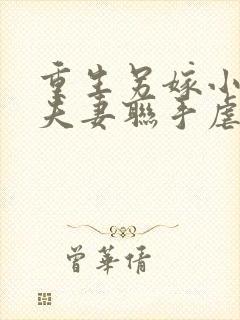 重生另嫁小
夫妻聯手虐
曾華倩